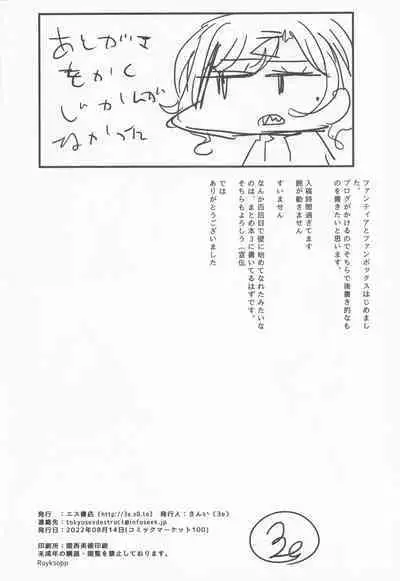 あとがき
をかく
じかんが
なかった
ファンティアとファンボックスはじめまし
た。
ブログがかけるのでそちらで後書き的なも
のを書きたいと思います。
入稿時間過ぎてます
腕が動きません
すいません
なんか百回目で壁に始めてなれたみたいな
のは、まとめ本3に書いてるはずです。
そちらもよろしう(宣伝
では
ありがとうございました
発行 :エス書店(http://3s.x0.to) 発行人:さんい(3e)
連絡先:tokyosexdestruct@infoseek.jp
発行日:2022年08月14日(コミックマーケット100)
印刷所:関西美術印刷
未成年の購読・閲覧を禁止しております。
Royksopp
3e